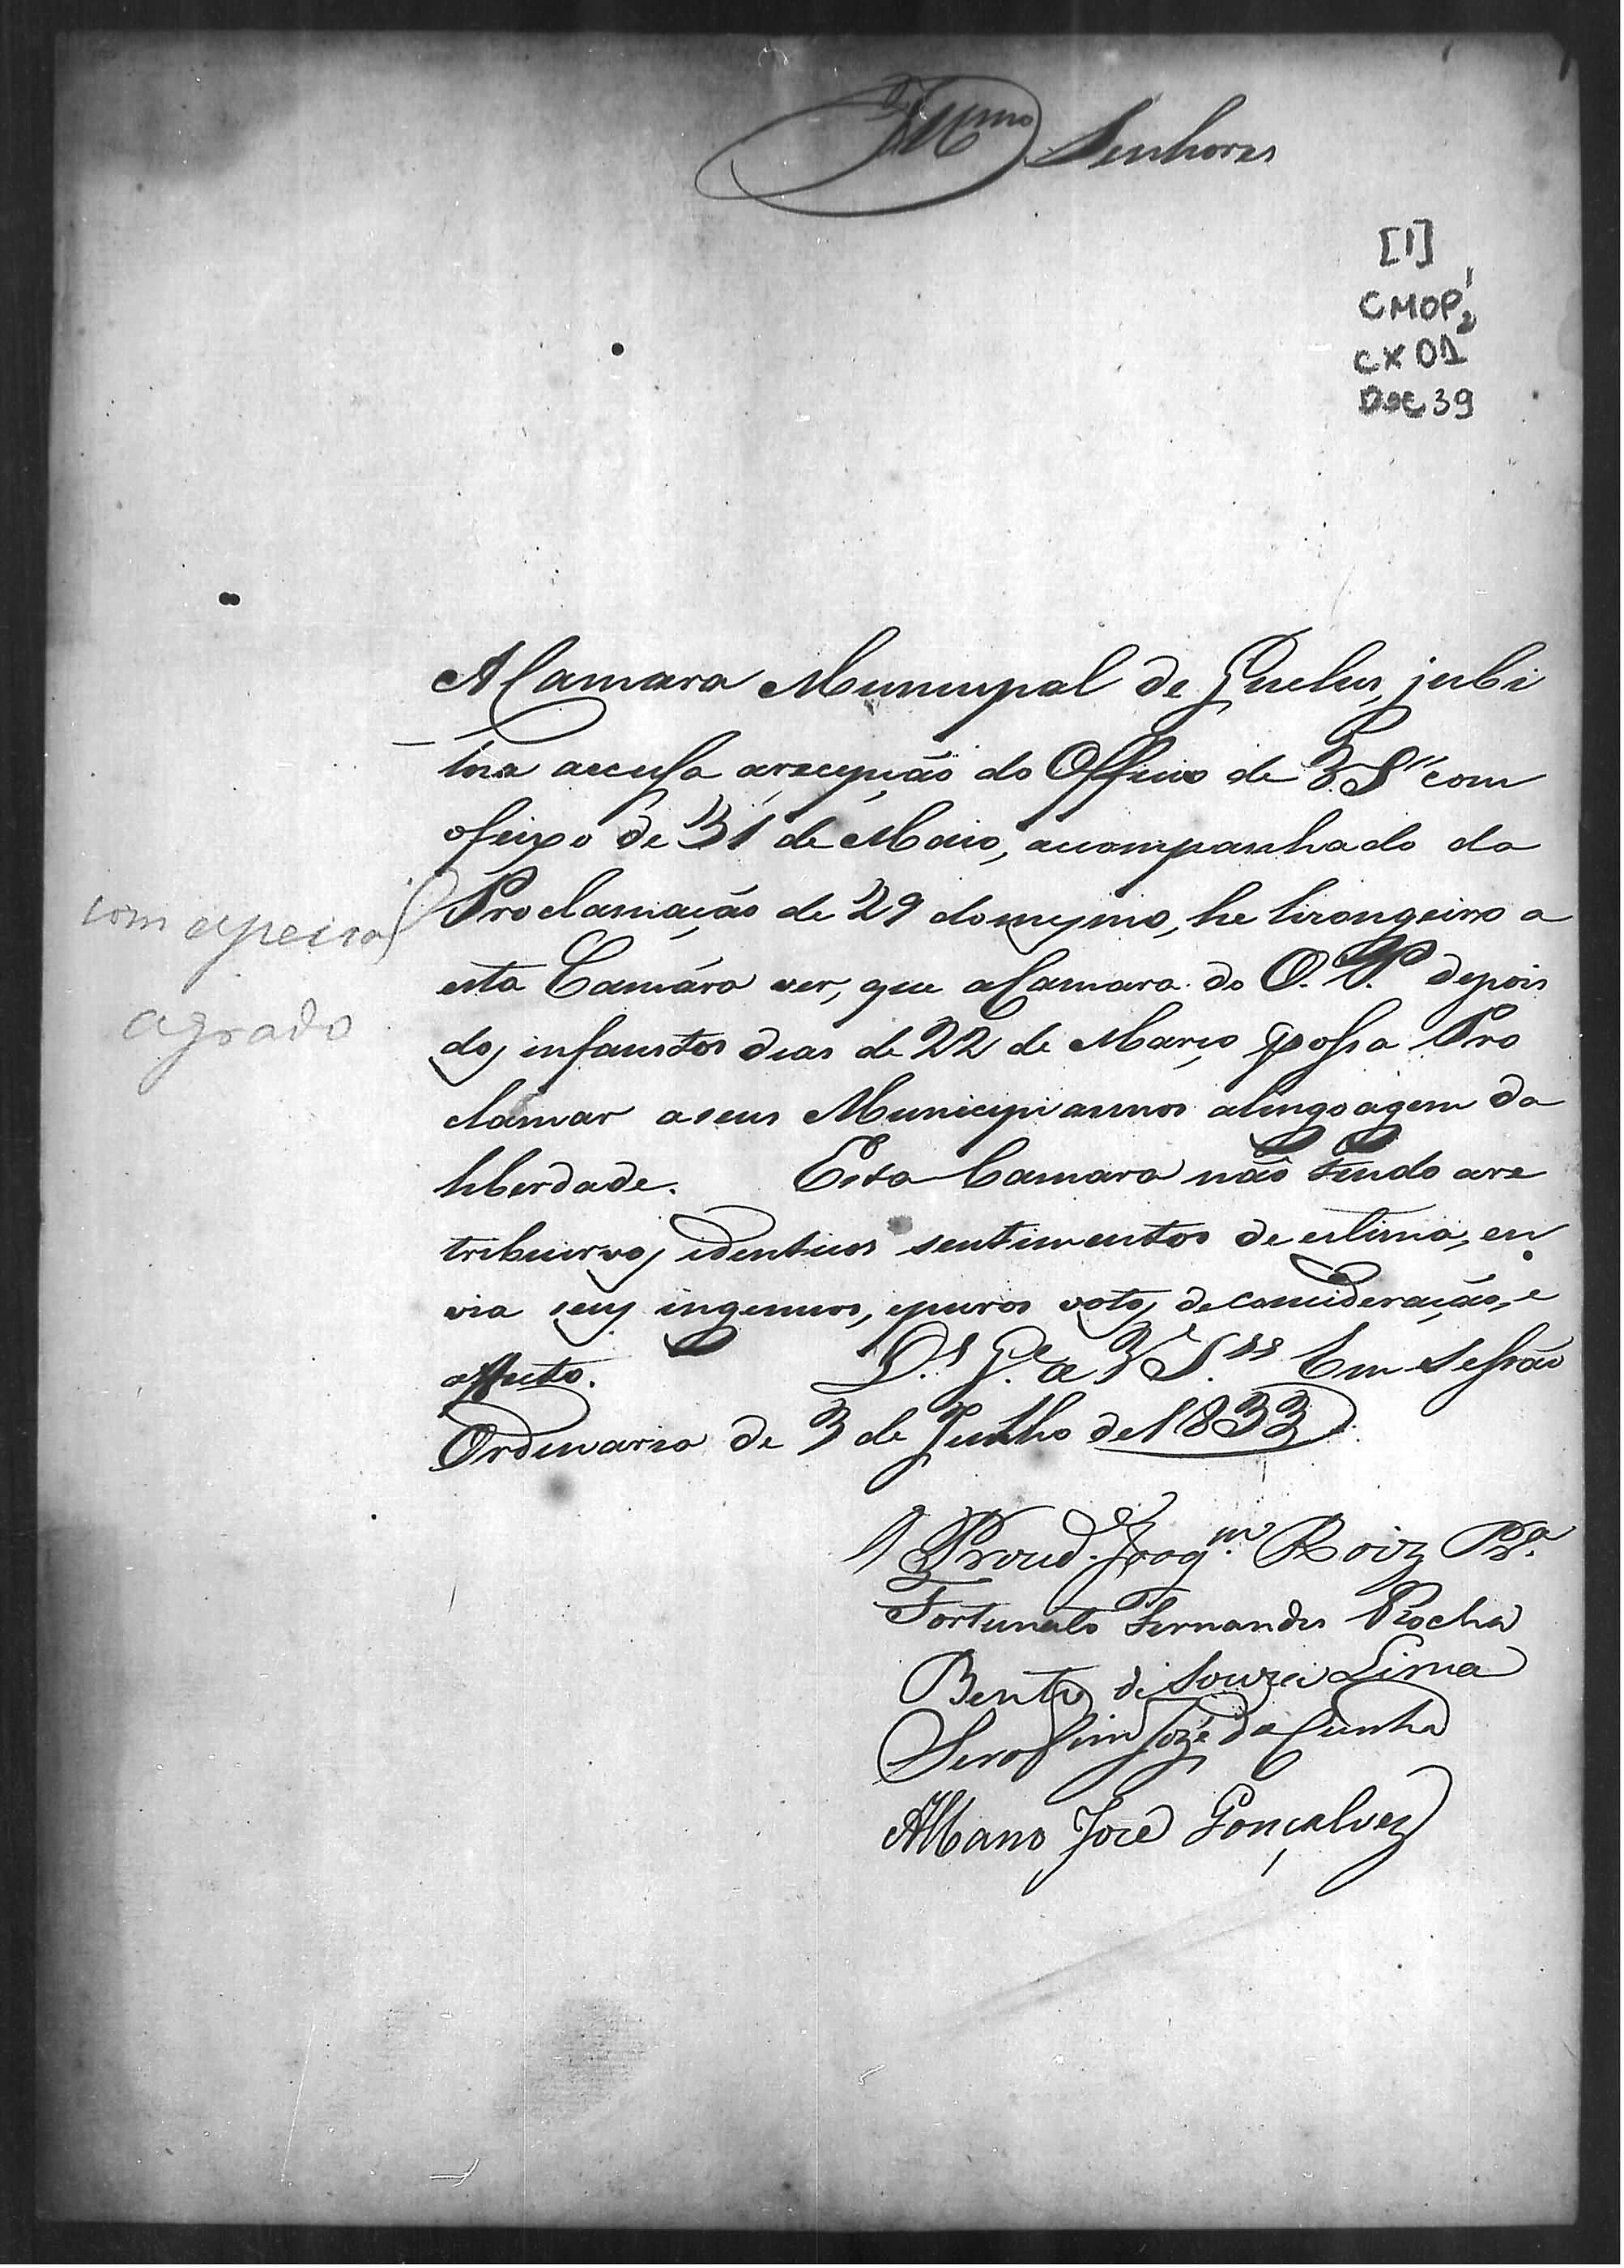 Illmos Senhores
[1]
CMOP,
CX 01
Doc 39
A Camara Municipal de Quelus, jubi
loza accusa arecepção do Officio de V.Sas com
ofeixo de 31 de Maio, acompanhado da
Proclamação de 29 domesmo, he lizongeiro a
com especial
agrado
esta Camára ver, que aCamara do O. P. depois
dos infaustos dias de 22 de Março possa Pro
clamar aseus Municipiannos alingoagem da
liberdade. Esta Camara não tendo are
tribuirvos identicos sentimentos de estima, en
via seus ingenuos, epuros votos deconsideração, e
affecto. Ds. Ge. a VSas. Em Sessão
Ordinaria de 3 de Junho de 1833
Joaqm. Roiz Pra.
Fortunato Fernandes Rocha
Bento de Souza Lima
Serafim Jozé da Cunha
Albano José Gonçalvez